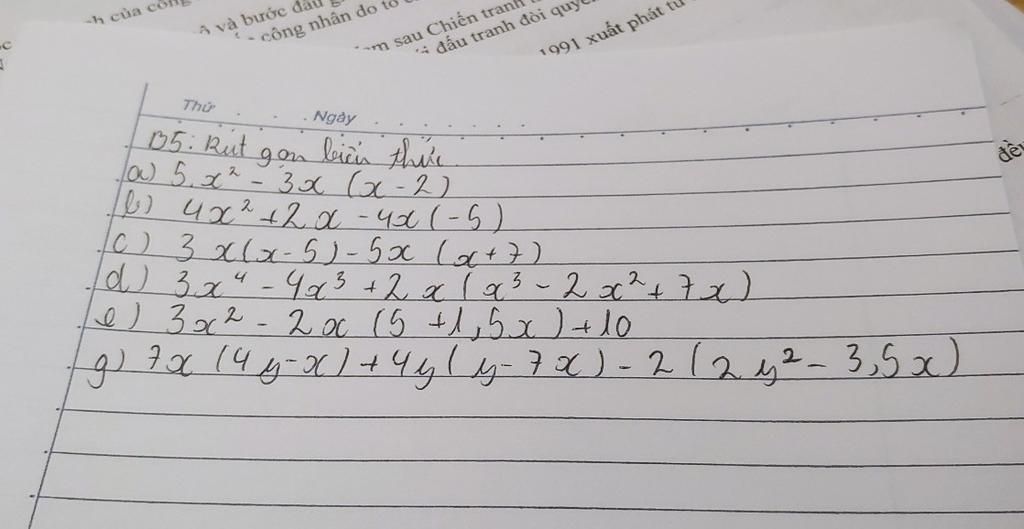 ch của công
ô và bước đầu
công nhân do tổ c
am sau Chiến tranh
đấu tranh đòi quyề
1991 xuất phát từ
Thứ . . . . Ngày . . . . . .
đề
B5: Rút gọn biểu thức
a) 5.x² - 3x (x - 2)
b) 4x² + 2x - 4x(-5)
c) 3x(x-5) - 5x (x+7)
d) 3x⁴ - 4x³ + 2x (x³ - 2x² + 7x)
e) 3x² - 2x (5 + 1,5x) + 10
g) 7x (4y-x) + 4y(y-7x) - 2(2y² - 3,5x)